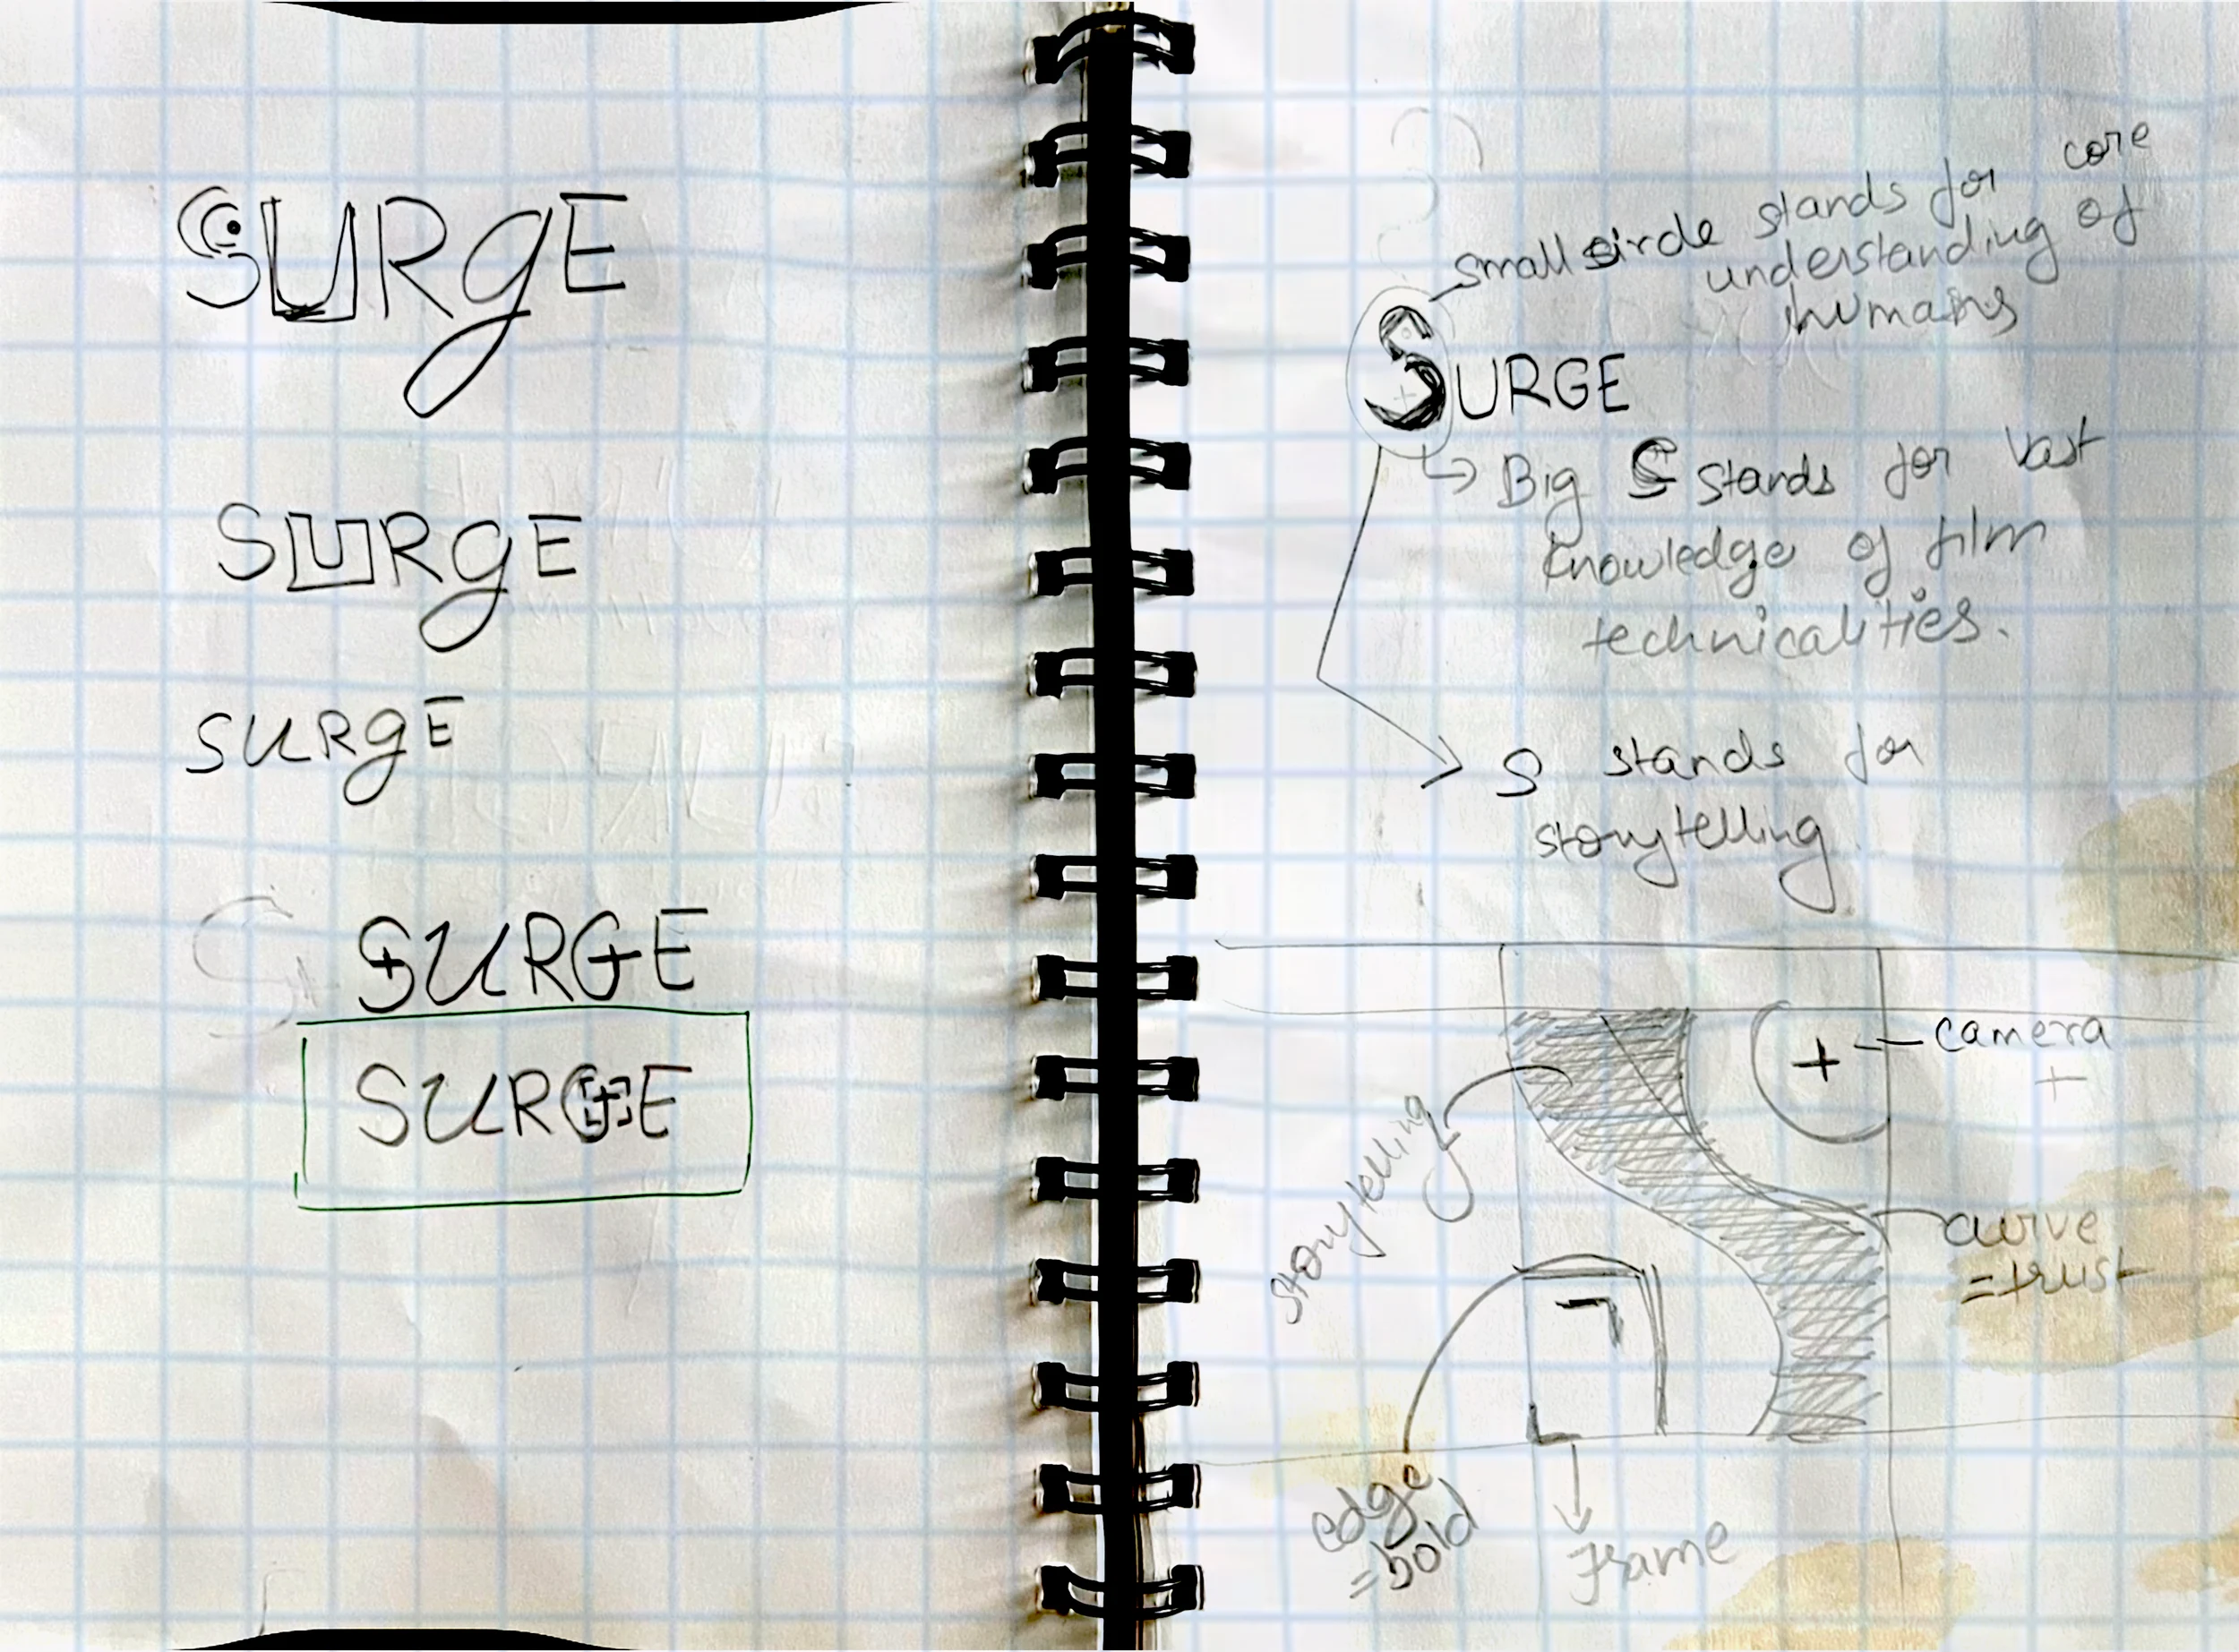 SURgE
SURgE
SURgE
S
SURGE
SURGE
small circle stands for core
understanding of
humans
SURGE
Big S stands for vast
knowledge of film
technicalities.
S stands for
storytelling
camera
+
storytelling
curve
=trust
edge
=bold
Frame